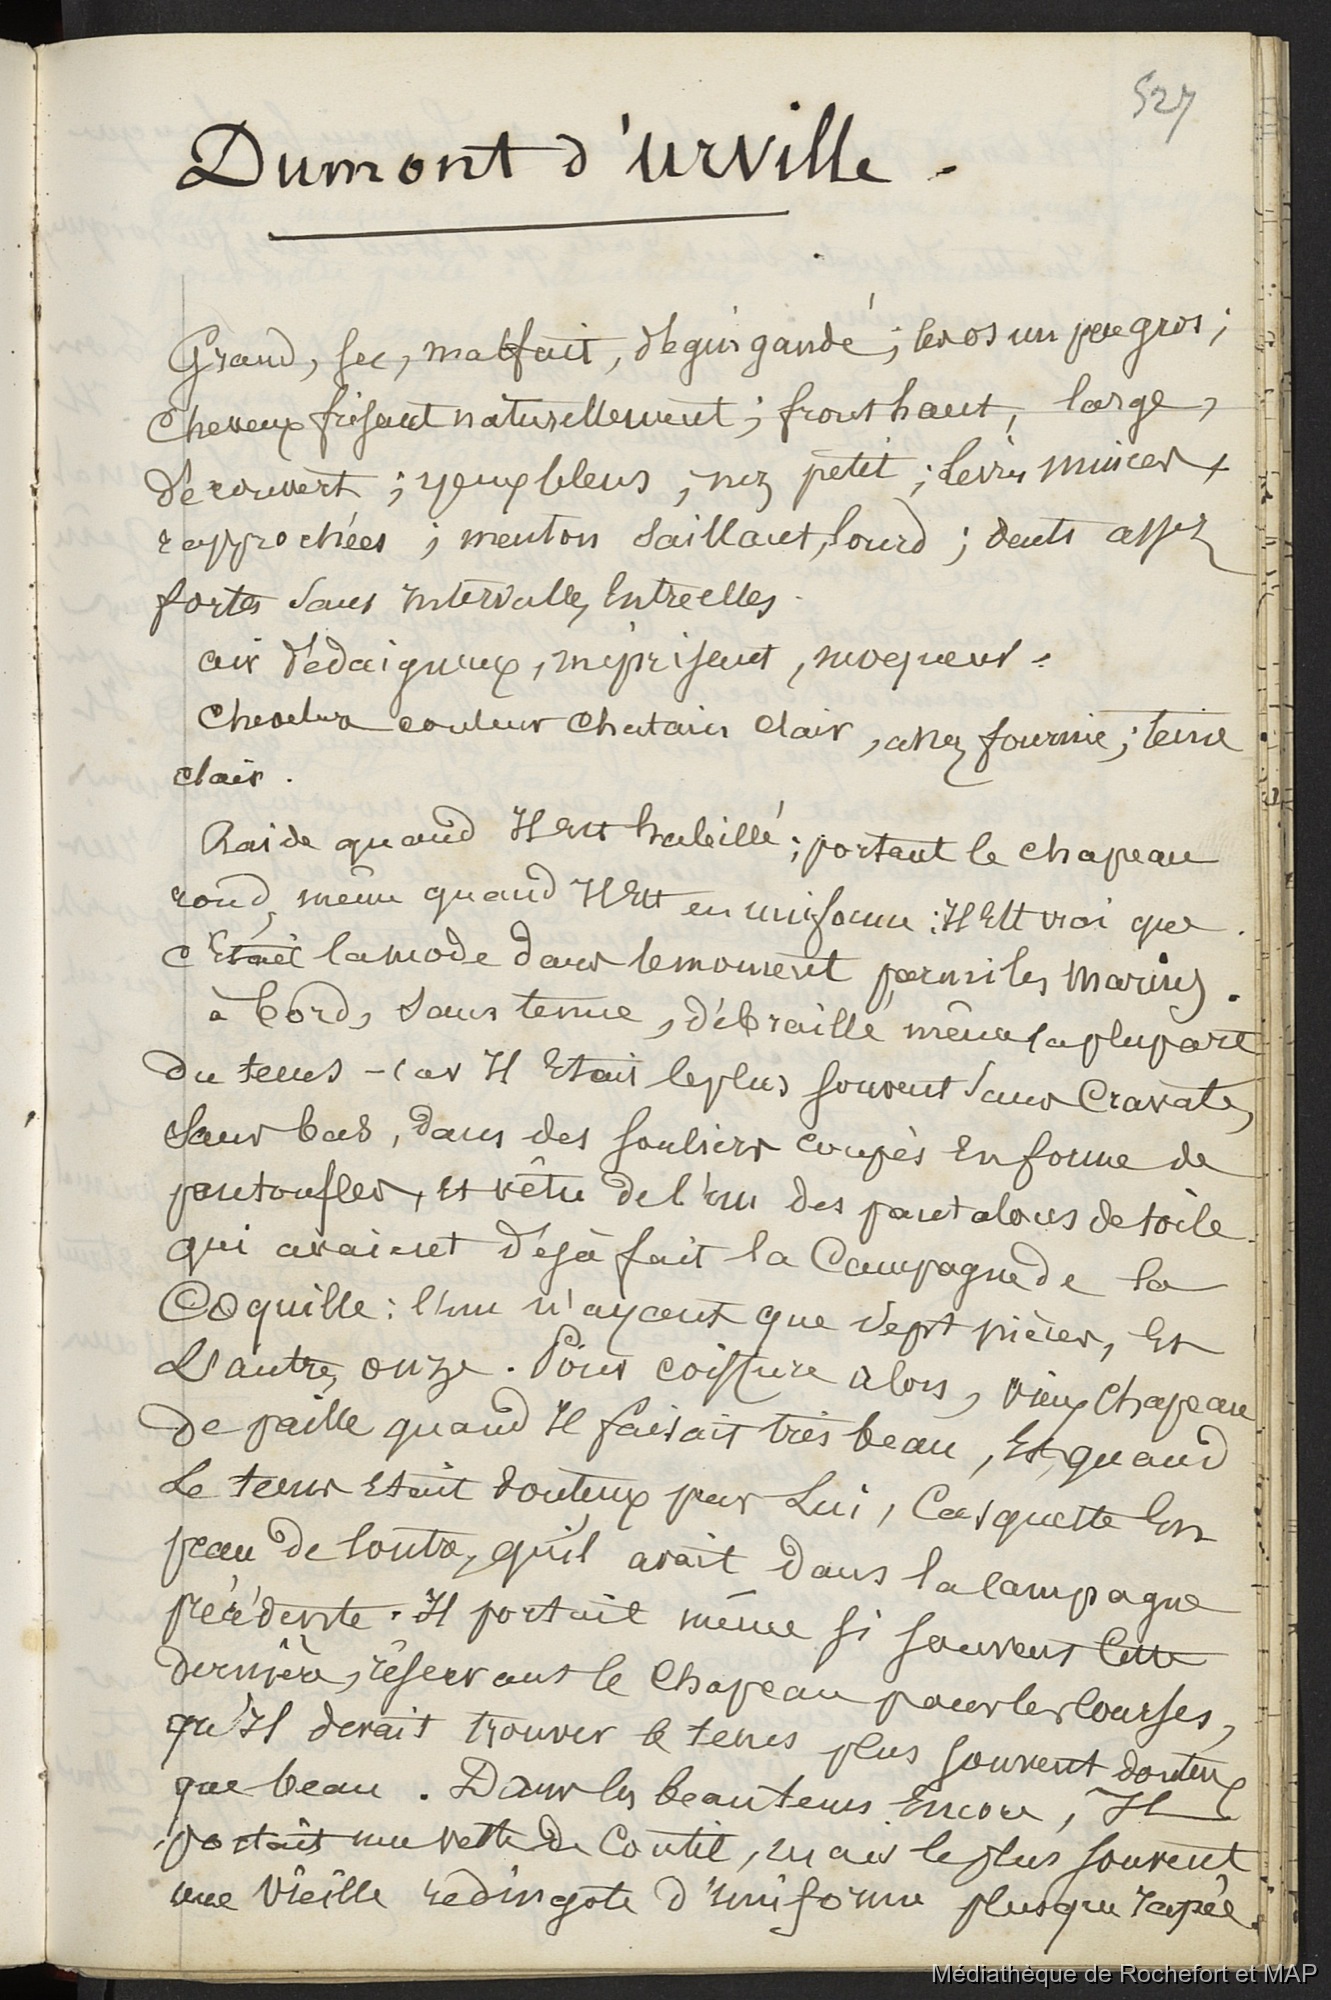 527
Dumont d'urville.
Grand, sec, mal fait, dégingandé; les os un peu gros;
cheveux frisant naturellement; front haut, large,
découvert; yeux bleus, nez petit; levres minces +
rapprochées; menton saillant, lourd; dents assez
fortes sans intervalles entre elles.
air dédaigneux, méprisant, moqueur.
chevelure couleur chatain clair, assez fournie; teint
clair.
Raide quand Il est habillé; portant le chapeau
rond, même quand Il est en uniforme: Il est vrai que
c'était la mode dans le moment parmi les marins.
à bord, sans tenue, débraillé même la plupart
du tems - car Il Etait le plus souvent sans Cravate,
sans bas, dans des souliers coupés En forme de
pantoufles, Et vêtu de l'un des pantalons de toile
qui avaient déjà fait la Campagne de la
Coquille: l'un n'ayant que sept pièces, Et
L'autre, onze. Pour coiffure alors, vieux chapeau
de paille quand Il faisait très beau, Et quand
Le tems Etait douteux par Lui, Casquette En
peau de loutre, qu'il avait dans la campagne
précédente. Il portait même si souvent Cette
dernière, réservant le chapeau pour les courses,
qu'Il devait trouver le tems plus souvent douteux
que beau. Dans les beaux tems Encore, Il
portait une veste de Coutil, mais le plus souvent
une vieille redingote d'uniforme plus que rapée.
Médiathèque de Rochefort et MAP